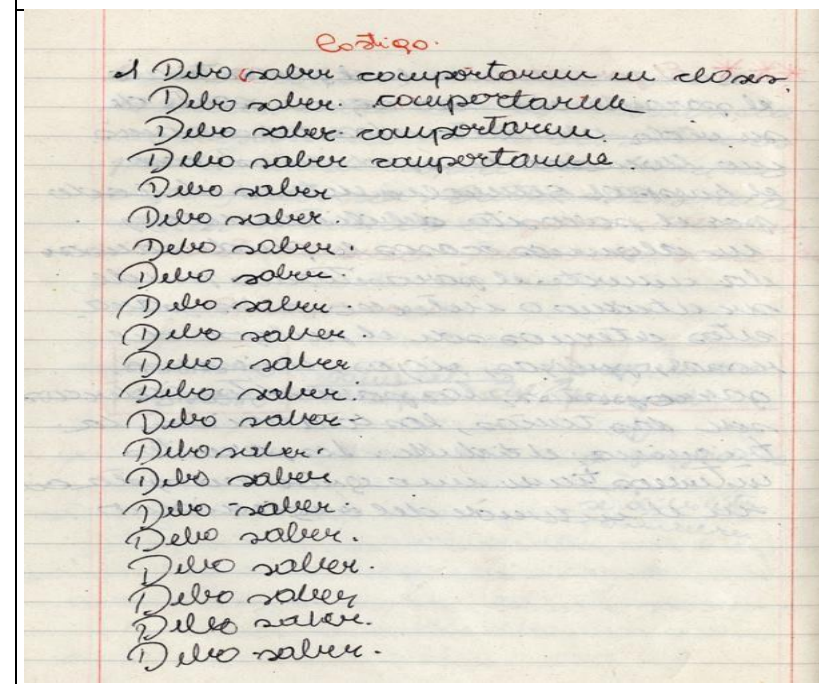 Castigo.
1 Debo saber comportarme en clases.
Debo saber. comportarme
Debo saber. comportarme.
Debo saber comportarme.
Debo saber
Debo saber.
Debo saber.
Debo saber.
Debo saber.
Debo saber.
Debo saber
Debo saber.
Debo saber.
Debo saber.
Debo saber
Debo saber.
Debo saber.
Debo saber.
Debo saber
Debo saber.
Debo saber.